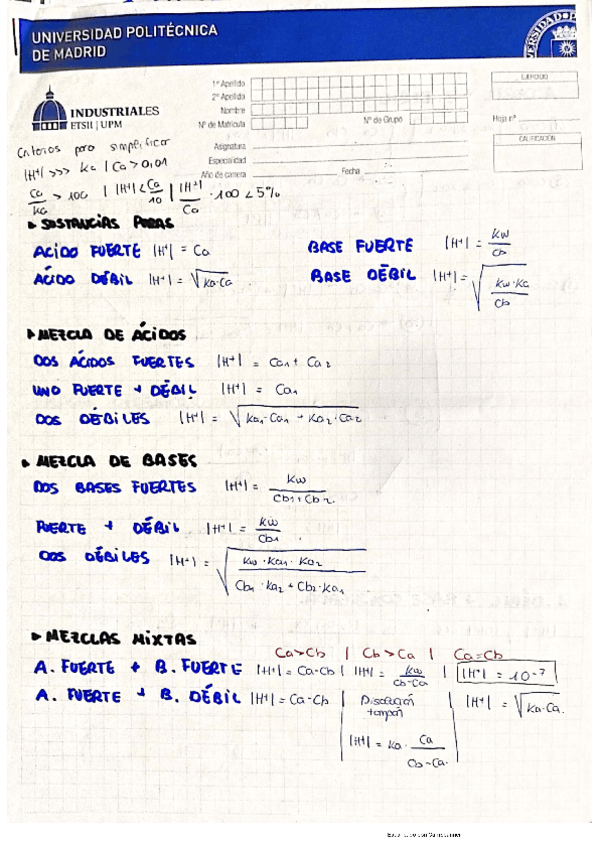 UNIVERSIDAD POLITÉCNICA
DE MADRID
INDUSTRIALES
ETSII | UPM
1º Apellido
2º Apellido
Nombre
Nº de Matrícula
Nº de Grupo
Asignatura
Especialidad
Año de carrera
Fecha
EJERCICIO
Hoja nº
CALIFICACIÓN
Criterios para simplificar
|H⁺| >>> Ka | Ca > 0,01
Ca/Ka > 100 | |H⁺| < Ca/10 | |H⁺|/Ca · 100 < 5%
▸ SUSTANCIAS PURAS
ACIDO FUERTE |H⁺| = Ca
BASE FUERTE |H⁺| = Kw/Cb
ÁCIDO DÉBIL |H⁺| = √(Ka·Ca)
BASE DÉBIL |H⁺| = √(Kw·Ka/Cb)
▸ MEZCLA DE ÁCIDOS
DOS ÁCIDOS FUERTES |H⁺| = Ca₁ + Ca₂
UNO FUERTE + DÉBIL |H⁺| = Ca₁
DOS DÉBILES |H⁺| = √(Ka₁·Ca₁ + Ka₂·Ca₂)
▸ MEZCLA DE BASES
DOS BASES FUERTES |H⁺| = Kw/(Cb₁+Cb₂)
FUERTE + DÉBIL |H⁺| = Kw/Cb₁
DOS DÉBILES |H⁺| = √(Kw·Ka₁·Ka₂/(Cb₁·Ka₂+Cb₂·Ka₁))
▸ MEZCLAS MIXTAS
Ca>Cb | Cb>Ca | Ca=Cb
A. FUERTE + B. FUERTE |H⁺| = Ca-Cb | |H⁺| = Kw/(Cb-Ca) | |H⁺| = 10⁻⁷
A. FUERTE + B. DÉBIL |H⁺| = Ca-Cb | Disolución tampón |H⁺| = Ka · Ca/(Cb-Ca) | |H⁺| = √(Ka·Ca)